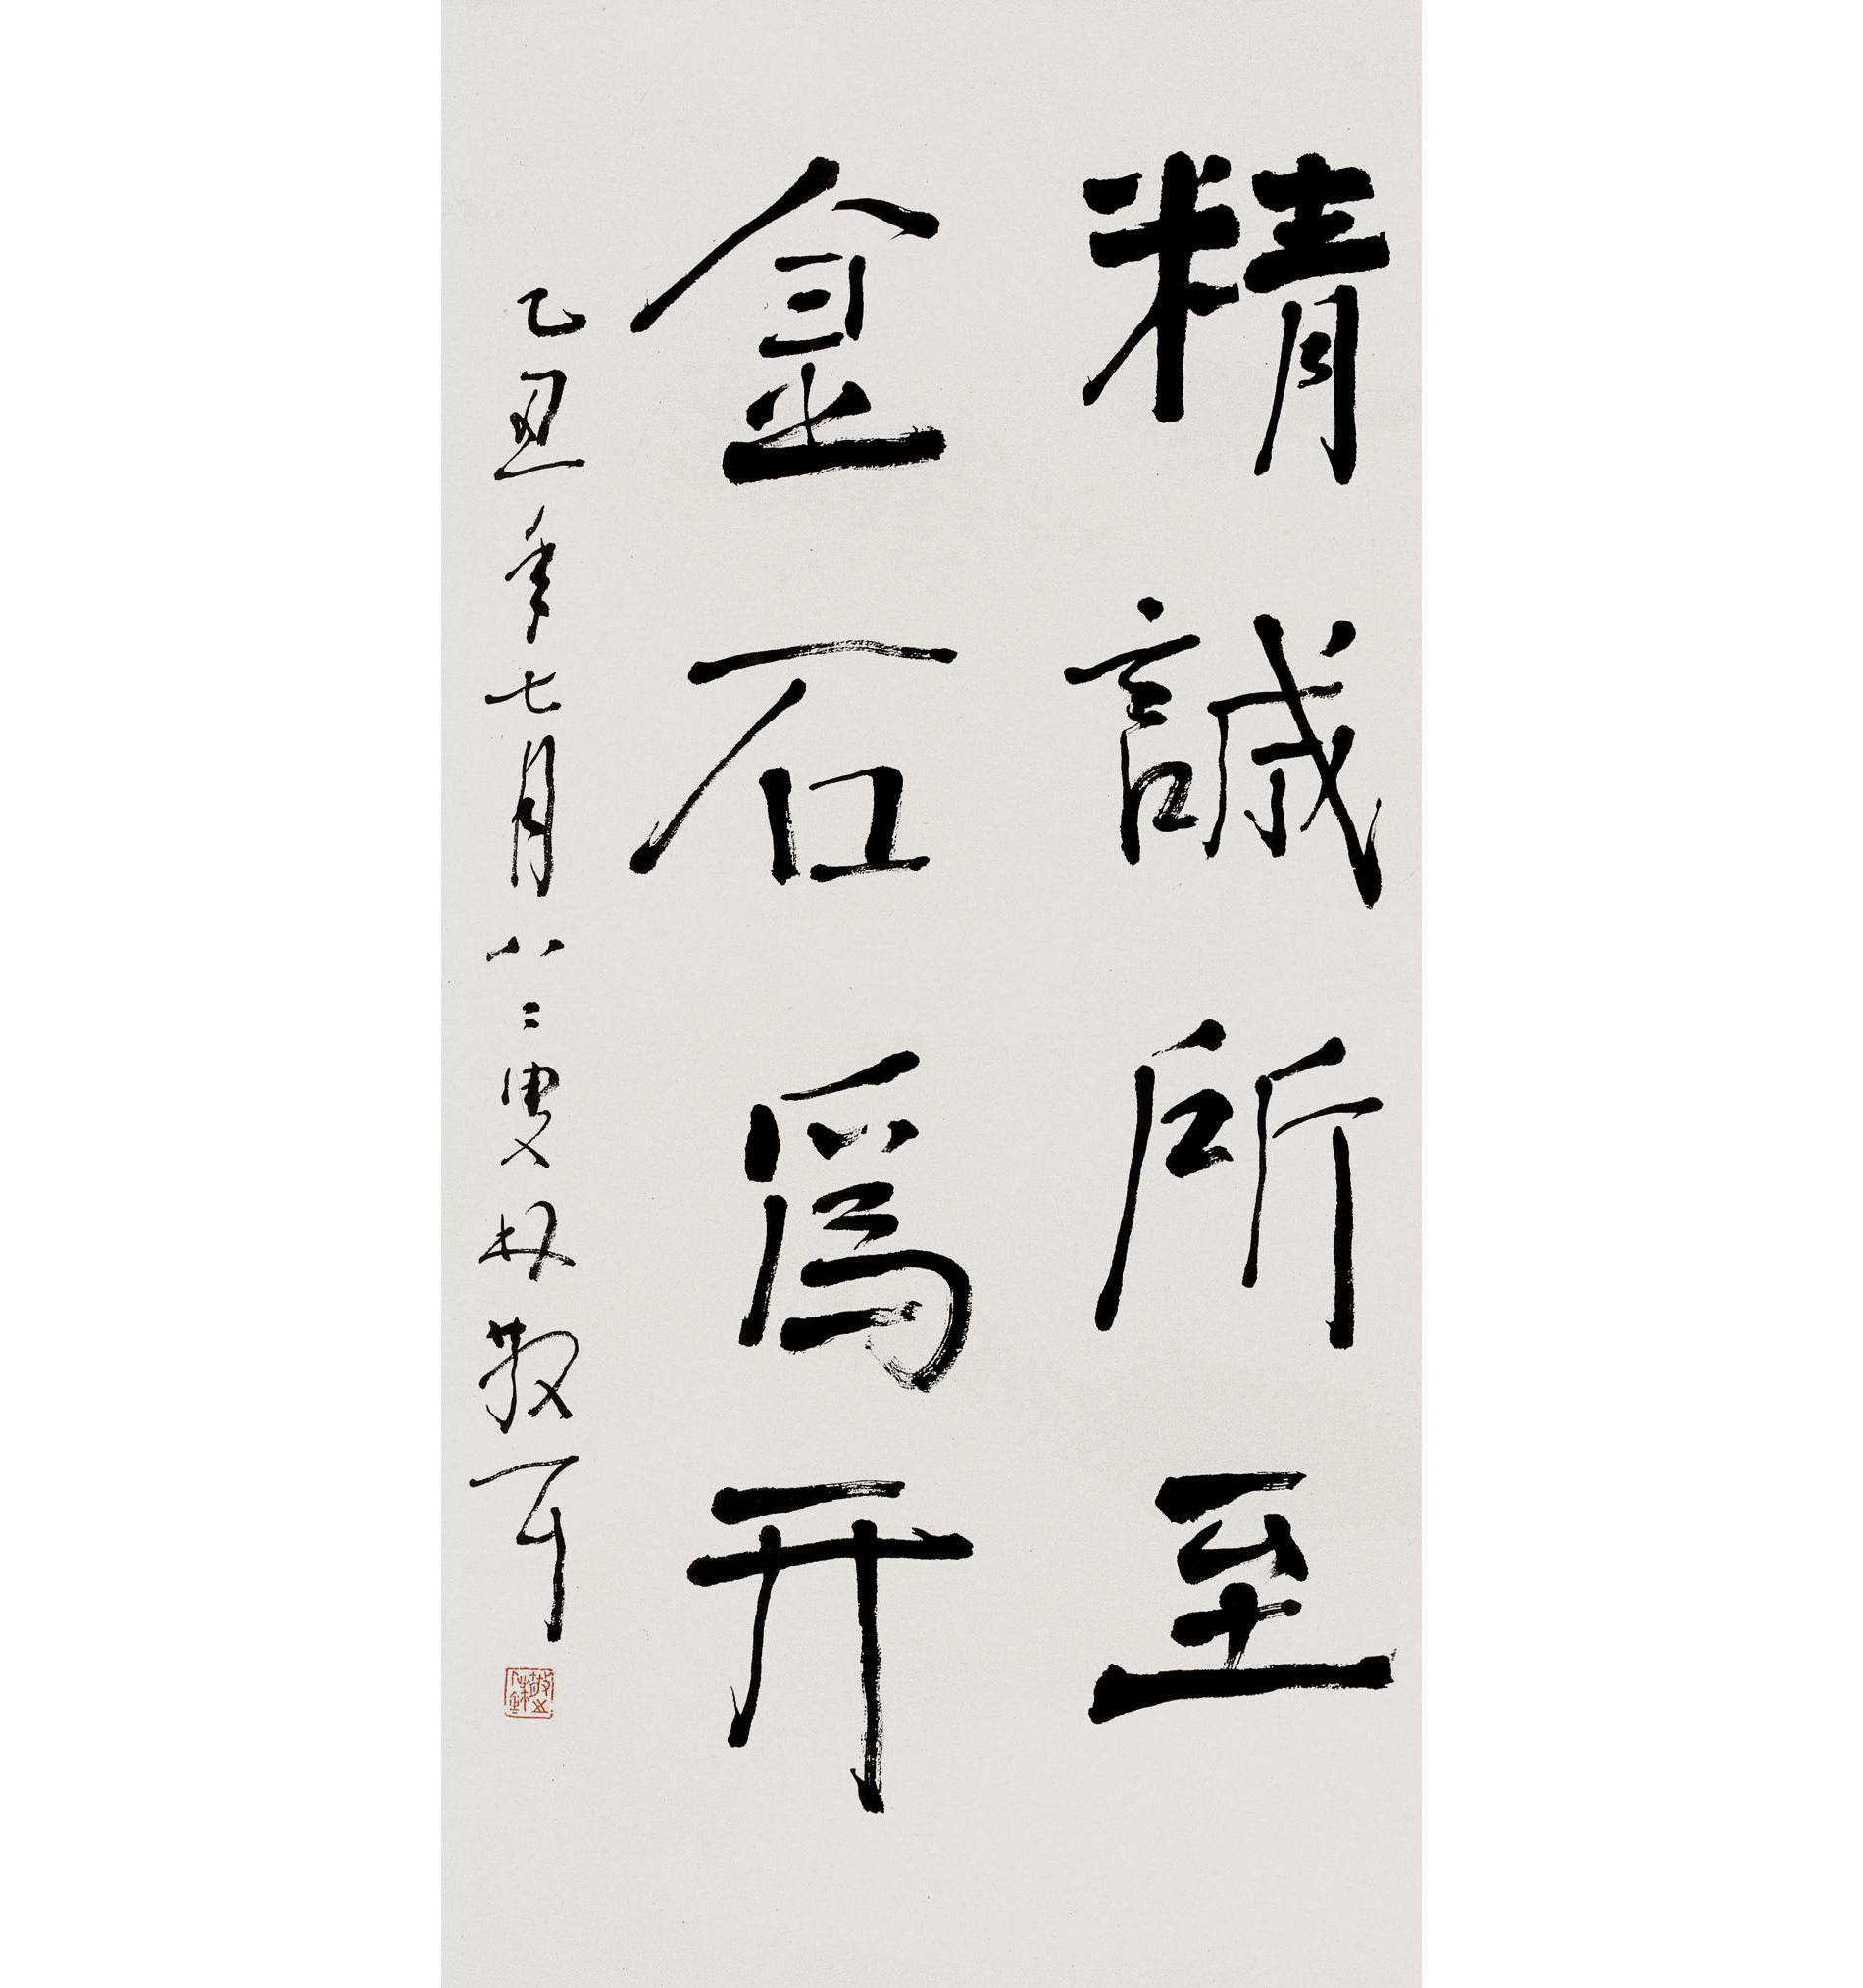 精誠所至
金石為开
乙丑年七月八二叟林散耳